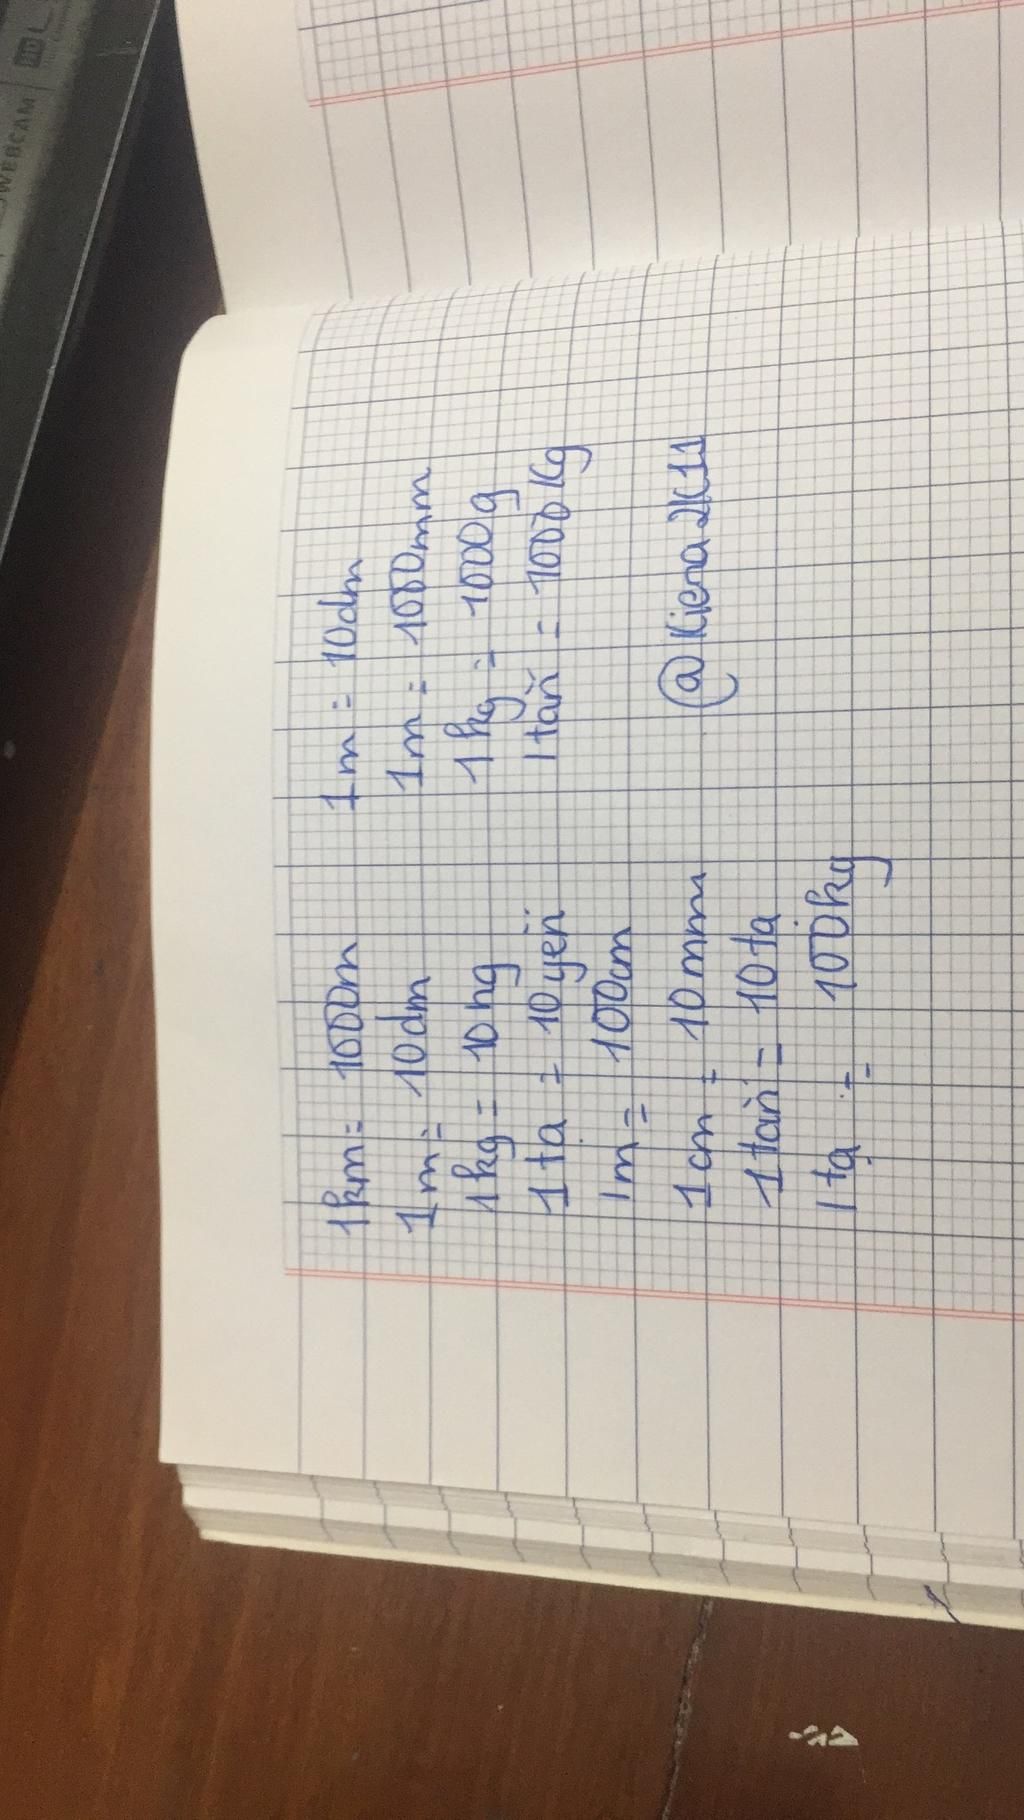 1km = 1000m
1m = 10dm
1kg = 10hg
1tạ = 10yến
1m = 100cm
1cm = 10mm
1tấn = 10tạ
1tạ = 100kg
1m = 10dm
1m = 1000mm
1kg = 1000g
1tấn = 1000kg
@Kiera2K11
WEBCAM
HD